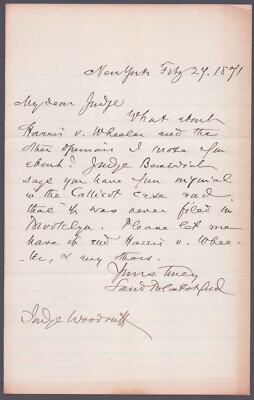 New York Feby 27. 1871
My dear Judge
What about
Harris v. Wheeler and the
other opinions I wrote you
about? Judge Benedict
says you have your original
in the Callicot case and
that it was never filed in
Brooklyn. Please let me
have it and Harris v. Whee-
ler, & any others.
Yours truly
Sam Blatchford
Judge Woodruff